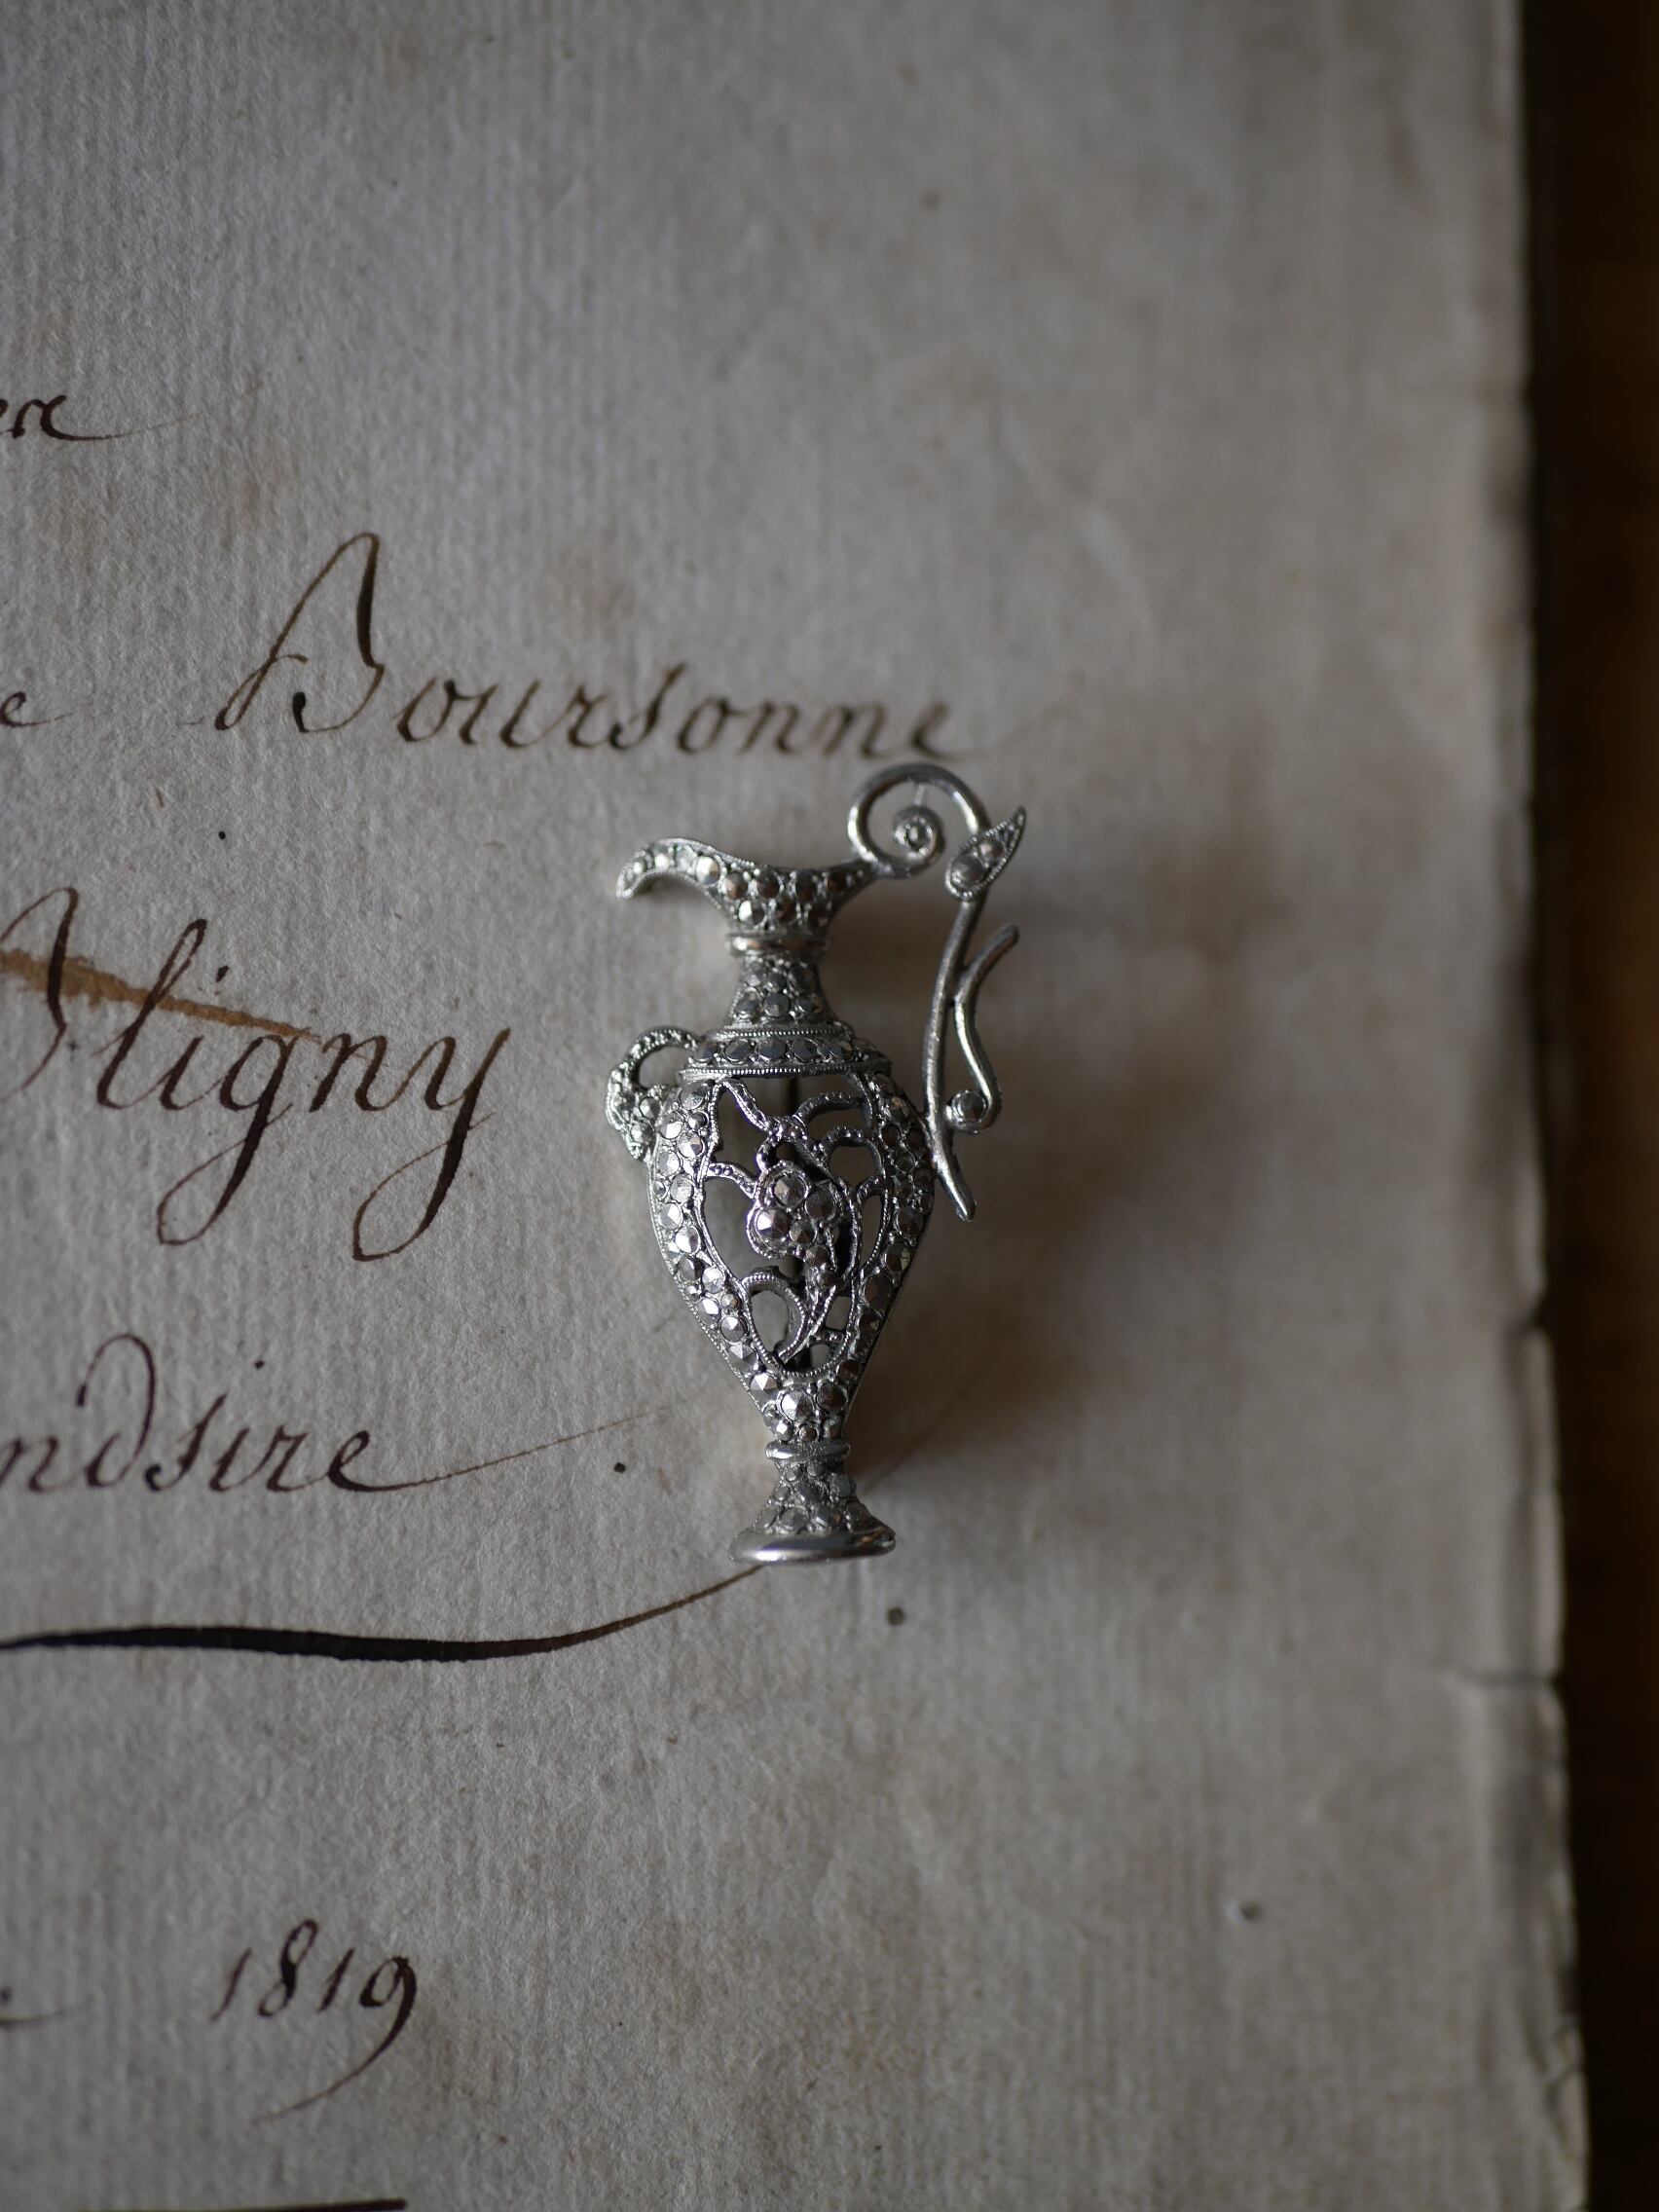 e Boursonne
Bligny
ndsire
1819